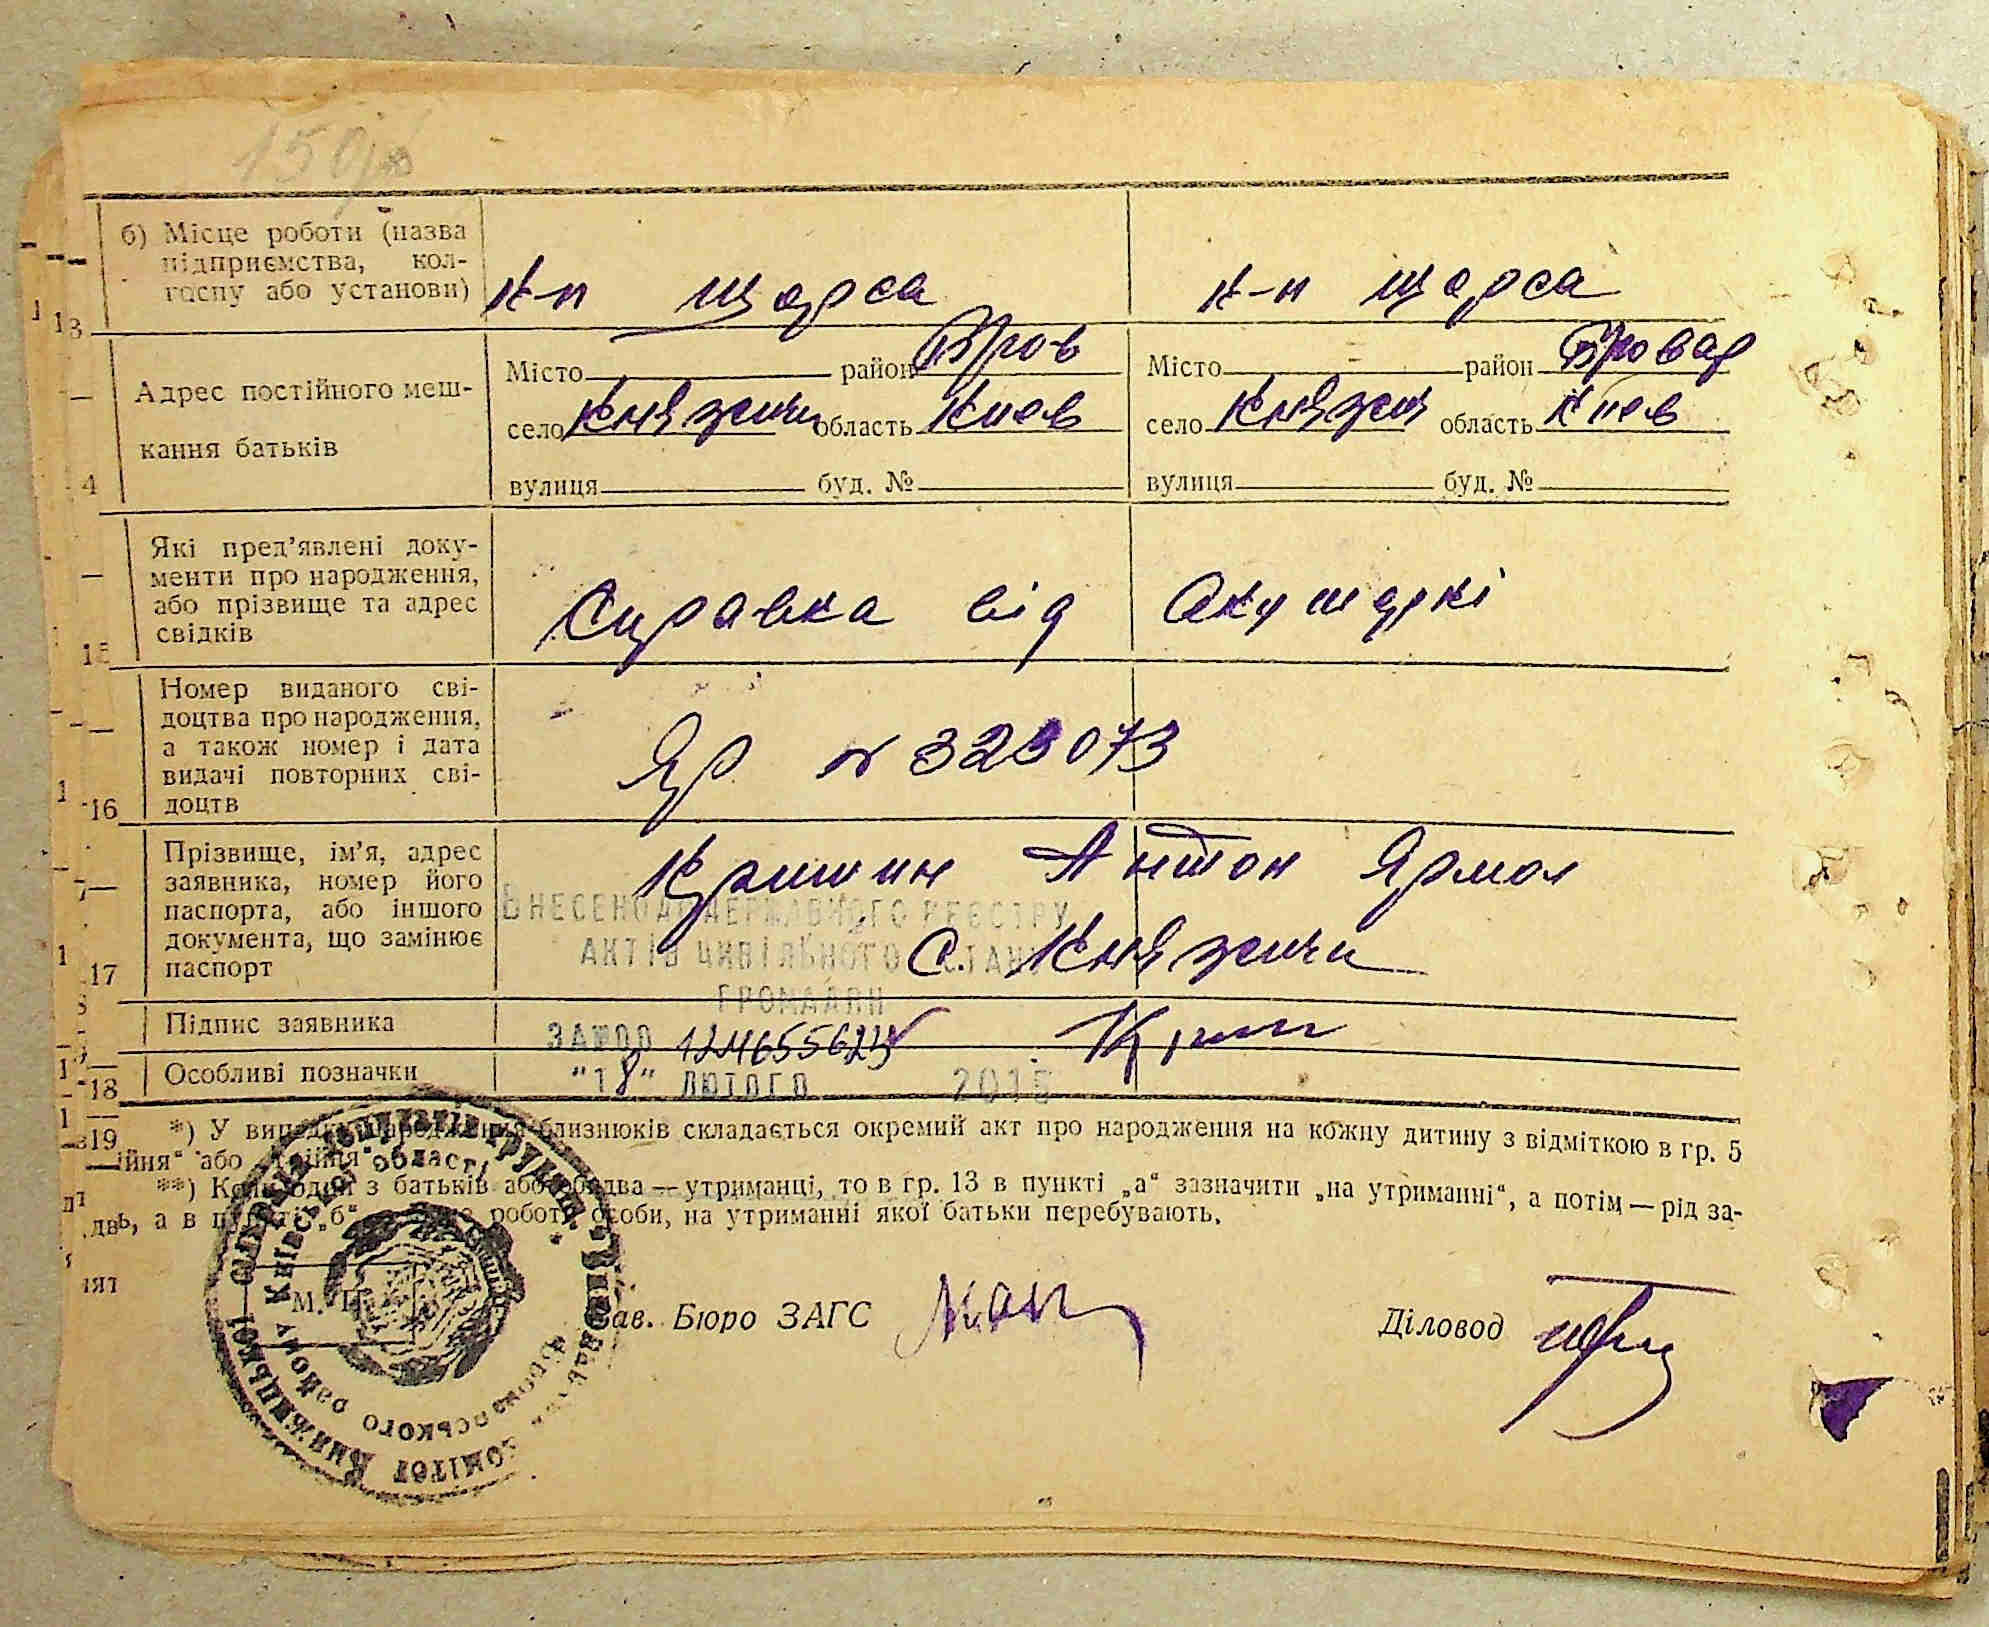 159
б) Місце роботи (назва
підприємства, кол-
госпу або установи)
К-п Щорса
К-п Щорса
13
Адрес постійного меш-
кання батьків
Місто район Бров
село Княжичи область Киев
вулиця буд. №
Місто — район Бровар
село Княжич область Киев
вулиця буд. №
Які пред'явлені доку-
менти про народження,
або прізвище та адрес
свідків
Справка від Акушеркі
15
Номер виданого сві-
доцтва про народження,
а також номер і дата
видачі повторних сві-
доцтв
ЯР № 323073
16
Прізвище, ім'я, адрес
заявника, номер його
паспорта, або іншого
документа, що замінює
паспорт
Кришин Антон Ярмол
с. Княжичи
17
ВНЕСЕНО ДО ДЕРЖАВНОГО РЕЄСТРУ
АКТІВ ЦИВІЛЬНОГО СТАНУ
ГРОМАДЯН
Підпис заявника
18
Особливі позначки
"18" ЛЮТОГО 2015
19
*) У випадку народження близнюків складається окремий акт про народження на кожну дитину з відміткою в гр. 5
**) Коли один з батьків або обидва — утриманці, то в гр. 13 в пункті „а“ зазначити „на утриманні“, а потім — рід за-
, а в пункті „б“ роботи особи, на утриманні якої батьки перебувають.
М. П.
Зав. Бюро ЗАГС
Діловод
Київської області
Броварського району